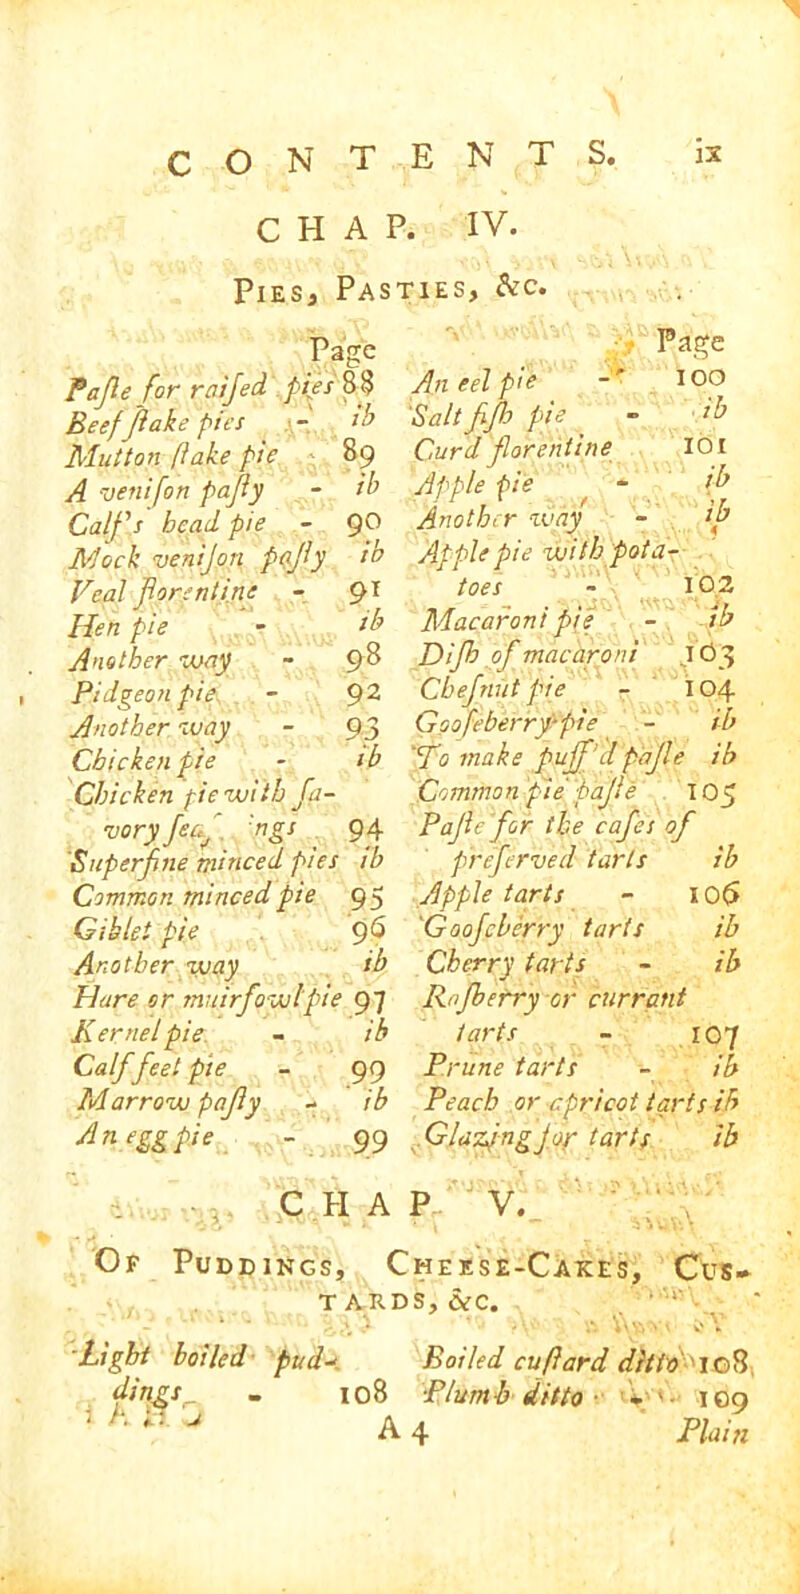 CONTENTS. ix
CHAP. IV.
PIES, PASTIES, &c.
Page
Paſte for raiſed pies 88
Beef ſtake pies - ib
Mutton ſtake pie - 89
A veniſon paſty - ib
Calf's head pie - 90
Mock veniſon paſty ib
Veal florentine - 91
Hen pie - ib
Another way - 98
Pidgeon pie - 92
Another way - 93
Chicken pie - ib
Chicken pie with ſa-
vory ngs 94
Superfine minced pies ib
Common minced pie 95
Giblet pie 96
Another way ib
Hare or muirfowl pie 97
Kernel pie - ib
Calf feet pie - 99
Marrow paſty - ib
An egg pie - 99
Page
An eel pie - 100
Salt fiſh pie - ib
Curd florentine 101
Apple pie - ib
Another way - ib
Apple pie with pota-
toes - 102
Macaroni pie - ib
Diſh of macaroni 103
Cheſnut pie - 104
Gooſeberry-pie - ib
To make puff'd paſte ib
Common pie paſte 105
Paſte for the caſes of
preſerved tarts ib
Apple tarts - 106
Gooſeberry tarts ib
Cherry tarts - ib
Raſberry or currant
tarts - 107
Prune tarts - ib
Peach or apricot tarts ib
Glazing for tarts ib
CHAP. V.
OF PUDDINGS, CHEESE-CAKES, CUS-
TARDS, &c.
Light boiled pud-
dings - 108
Boiled cuſtard ditto 108
Plumb ditto - 109
A 4 Plain